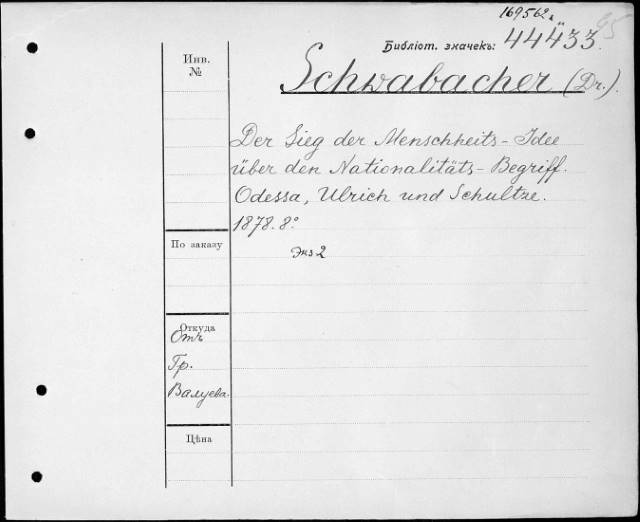 169562a
45
Библіот. значекъ: 44433
Инв.
№
Schwabacher (Dr.).
Der Sieg der Menschheits-Idee
über den Nationalitäts-Begriff.
Odessa, Ulrich und Schultze.
1878. 8º
По заказу
Экз 2
Откуда
Отъ
Гр.
Валуева.
Цѣна